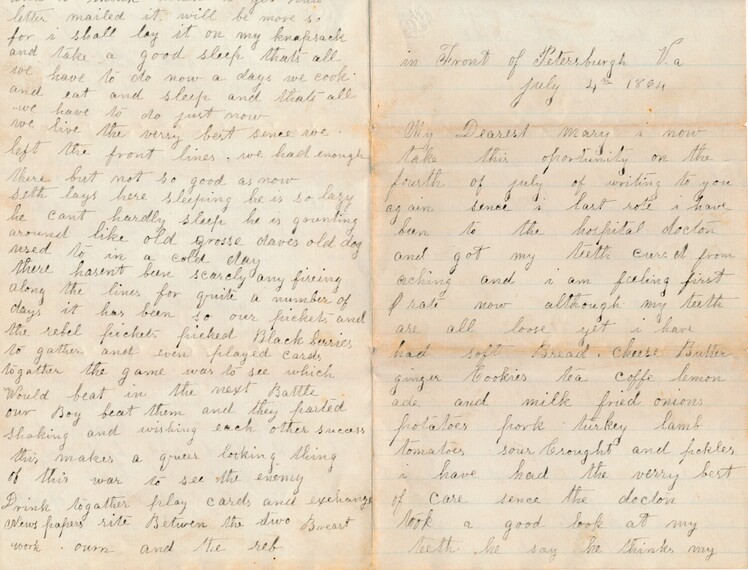 letter mailed it will be move so
for i shall lay it on my knapsack
and take a good sleep thats all
we have to do now a days we cook
and eat and sleep and thats all
we have to do just now
we live the verry best sence we
left the front lines . we had enough
there but not so good as now
seth lays here sleeping he is so lazy
he cant hardly sleep he is grunting
around like old grosse daves old dog
used to in a cold day
there hasent been scarcly any fireing
along the lines for quite a number of
days it has been so our pickets and
the rebel pickets picked Black berries
to gather and even played cards
togather the game was to see which
Would beat in the next Battle
our Boy beat them and they parted
shaking and wishing each other success
this makes a queer looking thing
of this war to see the enemy
Drink togather play cards and exchange
News papers rite Betwen the two Breast
work . ourn and the reb
in Front of Petersburgh V.a
july 4th 1864
My Dearest mary i now
take this oportunity on the
fourth of july of writing to you
again sence i last rote i have
been to the hospital docton
and got my teeth cured from
acheing and i am feeling first
rate now although my teeth
are all loose yet i have
had soft Bread . cheese Butter
ginger Cookies tea coffe lemon
ade and milk fried onions
potatoes pork turkey lamb
tomatoes sour crought and pickles
i have had the verry best
of care sence the docton
took a good look at my
teeth . he say he thinks my